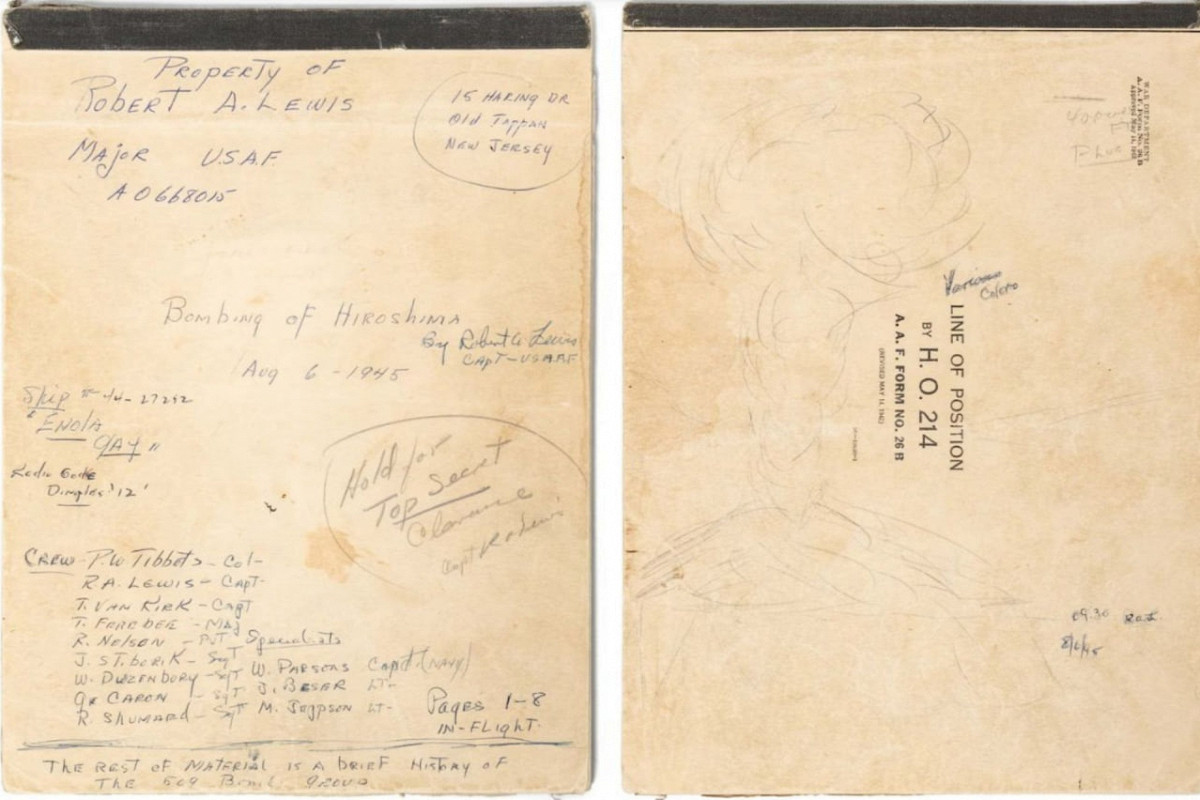 PROPERTY OF
ROBERT A. LEWIS
MAJOR U.S.A.F.
AO668015
15 HARING DR
Old Tappan
NEW JERSEY
BOMBING OF HIROSHIMA
By Robert A Lewis
CAPT-USAAF
Aug 6 - 1945
Ship # 44-27292
"ENOLA
GAY"
Radio Code
Dimples '12'
Hold for
Top Secret
Capt R A Lewis
CREW - P.W. Tibbets - Col-
R.A. LEWIS - CAPT-
T. VAN KIRK - CAPT
T. FEREBEE - MAJ
R. Nelson - PVT Specialists
J. STIBORIK - SgT
W. DUZENBURY - SgT W. PARSONS Capt (NAVY)
CARON - SgT J. BESER LT-
R. SHUMARD - SgT M. Jeppson LT-
Pages 1-8
IN-FLIGHT.
THE REST OF MATERIAL IS A BRIEF HISTORY OF
THE 509 Bomb GROUP
WAR DEPARTMENT
A. A. F. FORM No. 26 B
LINE OF POSITION
BY H. O. 214
A. A. F. FORM NO. 26 B
(REVISED MAY 14, 1942)
09:30
8/6/45